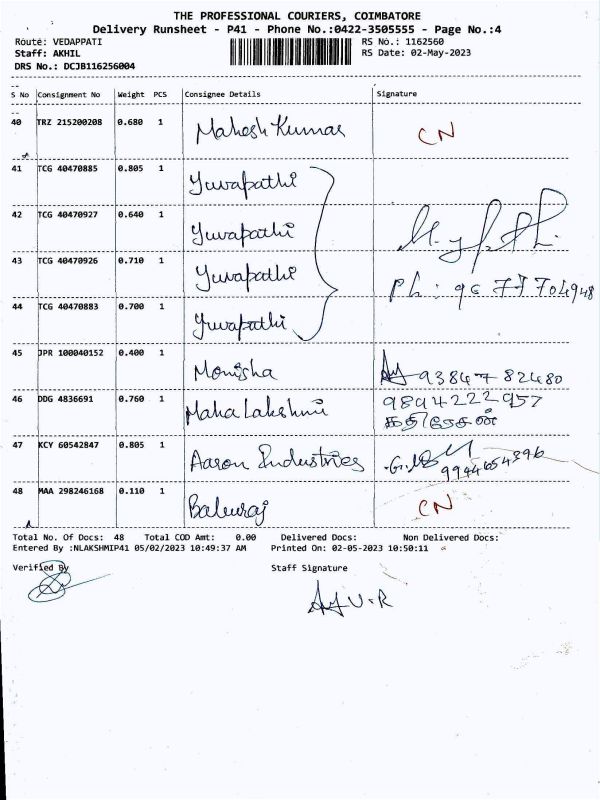 THE PROFESSIONAL COURIERS, COIMBATORE
Delivery Runsheet - P41 - Phone No.:0422-3505555 - Page No.:4
Route: VEDAPPATI RS No.: 1162560
Staff: AKHIL RS Date: 02-May-2023
DRS No.: DCJB116256004
S No Consignment No Weight PCS Consignee Details Signature
40 TRZ 215200208 0.680 1 Mahesh Kumar CN
41 TCG 40470885 0.805 1 Yuvapathi
42 TCG 40470927 0.640 1 Yuvapathi
43 TCG 40470926 0.710 1 Yuvapathi Ph: 9677704948
44 TCG 40470883 0.700 1 Yuvapathi
45 JPR 100040152 0.400 1 Monisha 9384782480
46 DDG 4836691 0.760 1 Maha Lakshmi 9894222957
கதிரேசன்
47 KCY 60542847 0.805 1 Aaron Industries 9944654396
48 MAA 298246168 0.110 1 Baluraj CN
Total No. Of Docs: 48 Total COD Amt: 0.00 Delivered Docs: Non Delivered Docs:
Entered By :NLAKSHMIP41 05/02/2023 10:49:37 AM Printed On: 02-05-2023 10:50:11
Verified By Staff Signature